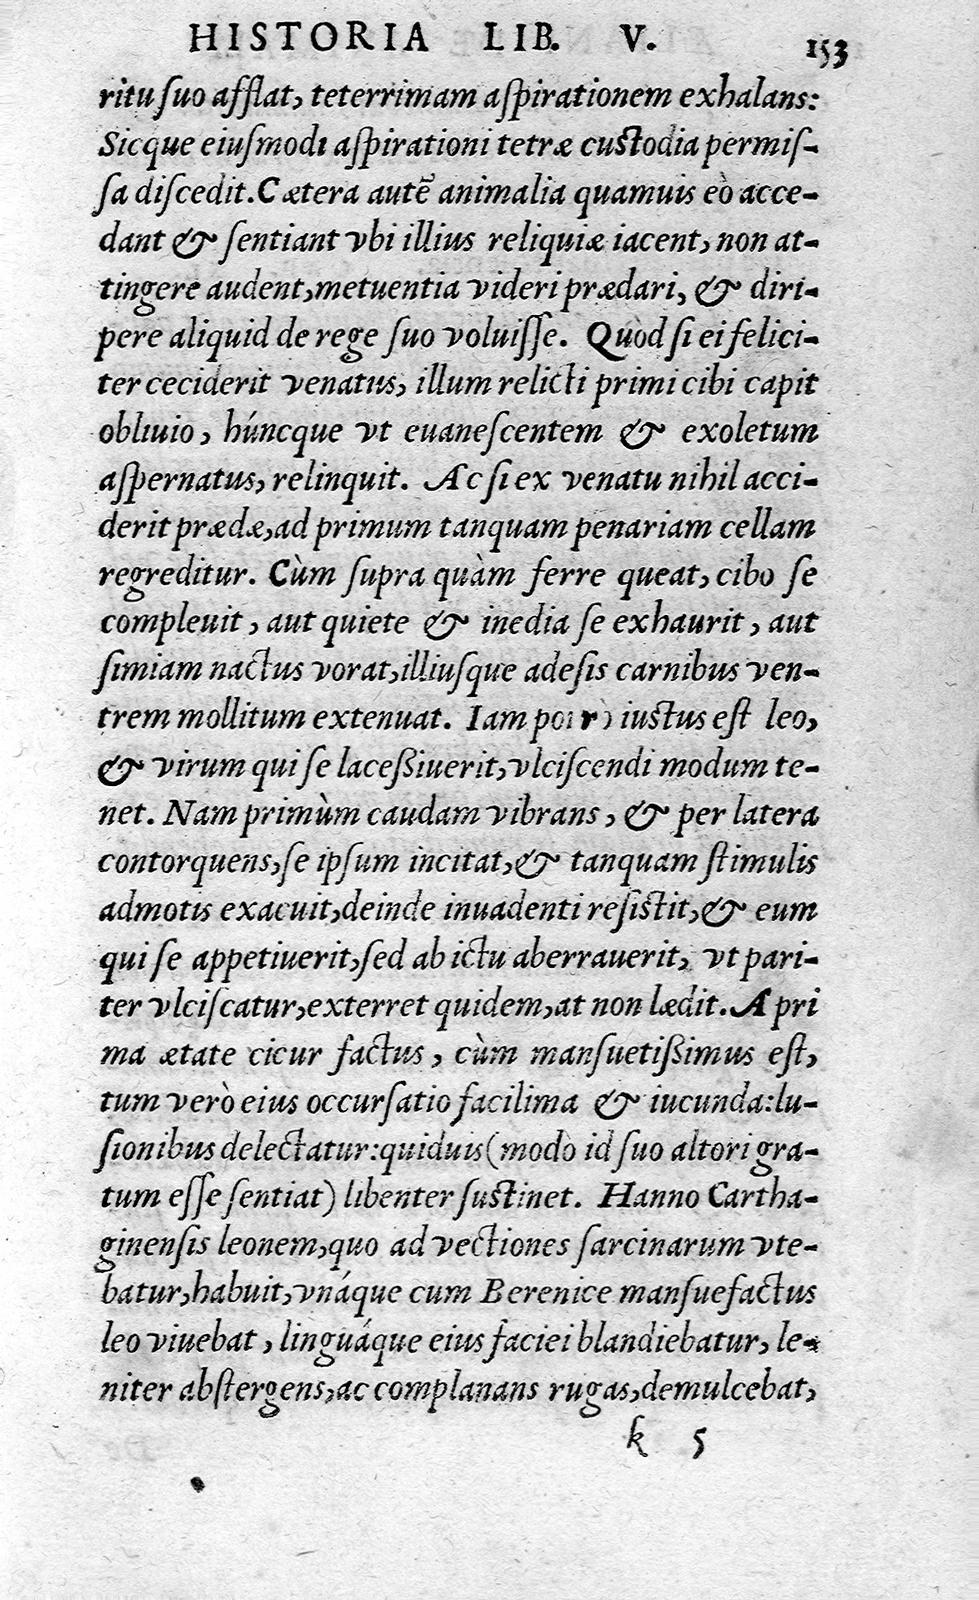 HISTORIA LIB. V. 153
ritu suo afflat, teterrimam aspirationem exhalans:
Sicque eiusmodi aspirationi tetræ custodia permis-
sa discedit. Cætera autē animalia quamuis eò acce-
dant & sentiant vbi illius reliquiæ iacent, non at-
tingere audent, metuentia videri prædari, & diri-
pere aliquid de rege suo voluisse. Quòd si ei felici-
ter ceciderit venatus, illum relicti primi cibi capit
obliuio, húncque vt euanescentem & exoletum
aspernatus, relinquit. Ac si ex venatu nihil acci-
derit prædæ, ad primum tanquam penariam cellam
regreditur. Cùm supra quàm ferre queat, cibo se
compleuit, aut quiete & inedia se exhaurit, aut
simiam nactus vorat, illiusque adesis carnibus ven-
trem mollitum extenuat. Iam iustus est leo,
& virum qui se laceßiuerit, vlciscendi modum te-
net. Nam primùm caudam vibrans, & per latera
contorquens, se ipsum incitat, & tanquam stimulis
admotis exacuit, deinde inuadenti resistit, & eum
qui se appetiuerit, sed ab ictu aberrauerit, vt pari-
ter vlciscatur, exterret quidem, at non lædit. A pri
ma ætate cicur factus, cùm mansuetißimus est,
tum verò eius occursatio facilima & iucunda: lu-
sionibus delectatur: quiduis (modò id suo altori gra-
tum esse sentiat) libenter sustinet. Hanno Cartha-
ginensis leonem, quo ad vectiones sarcinarum vte-
batur, habuit, vnáque cum Berenice mansuefactus
leo viuebat, linguáque eius faciei blandiebatur, le-
niter abstergens, ac complanans rugas, demulcebat,
k 5